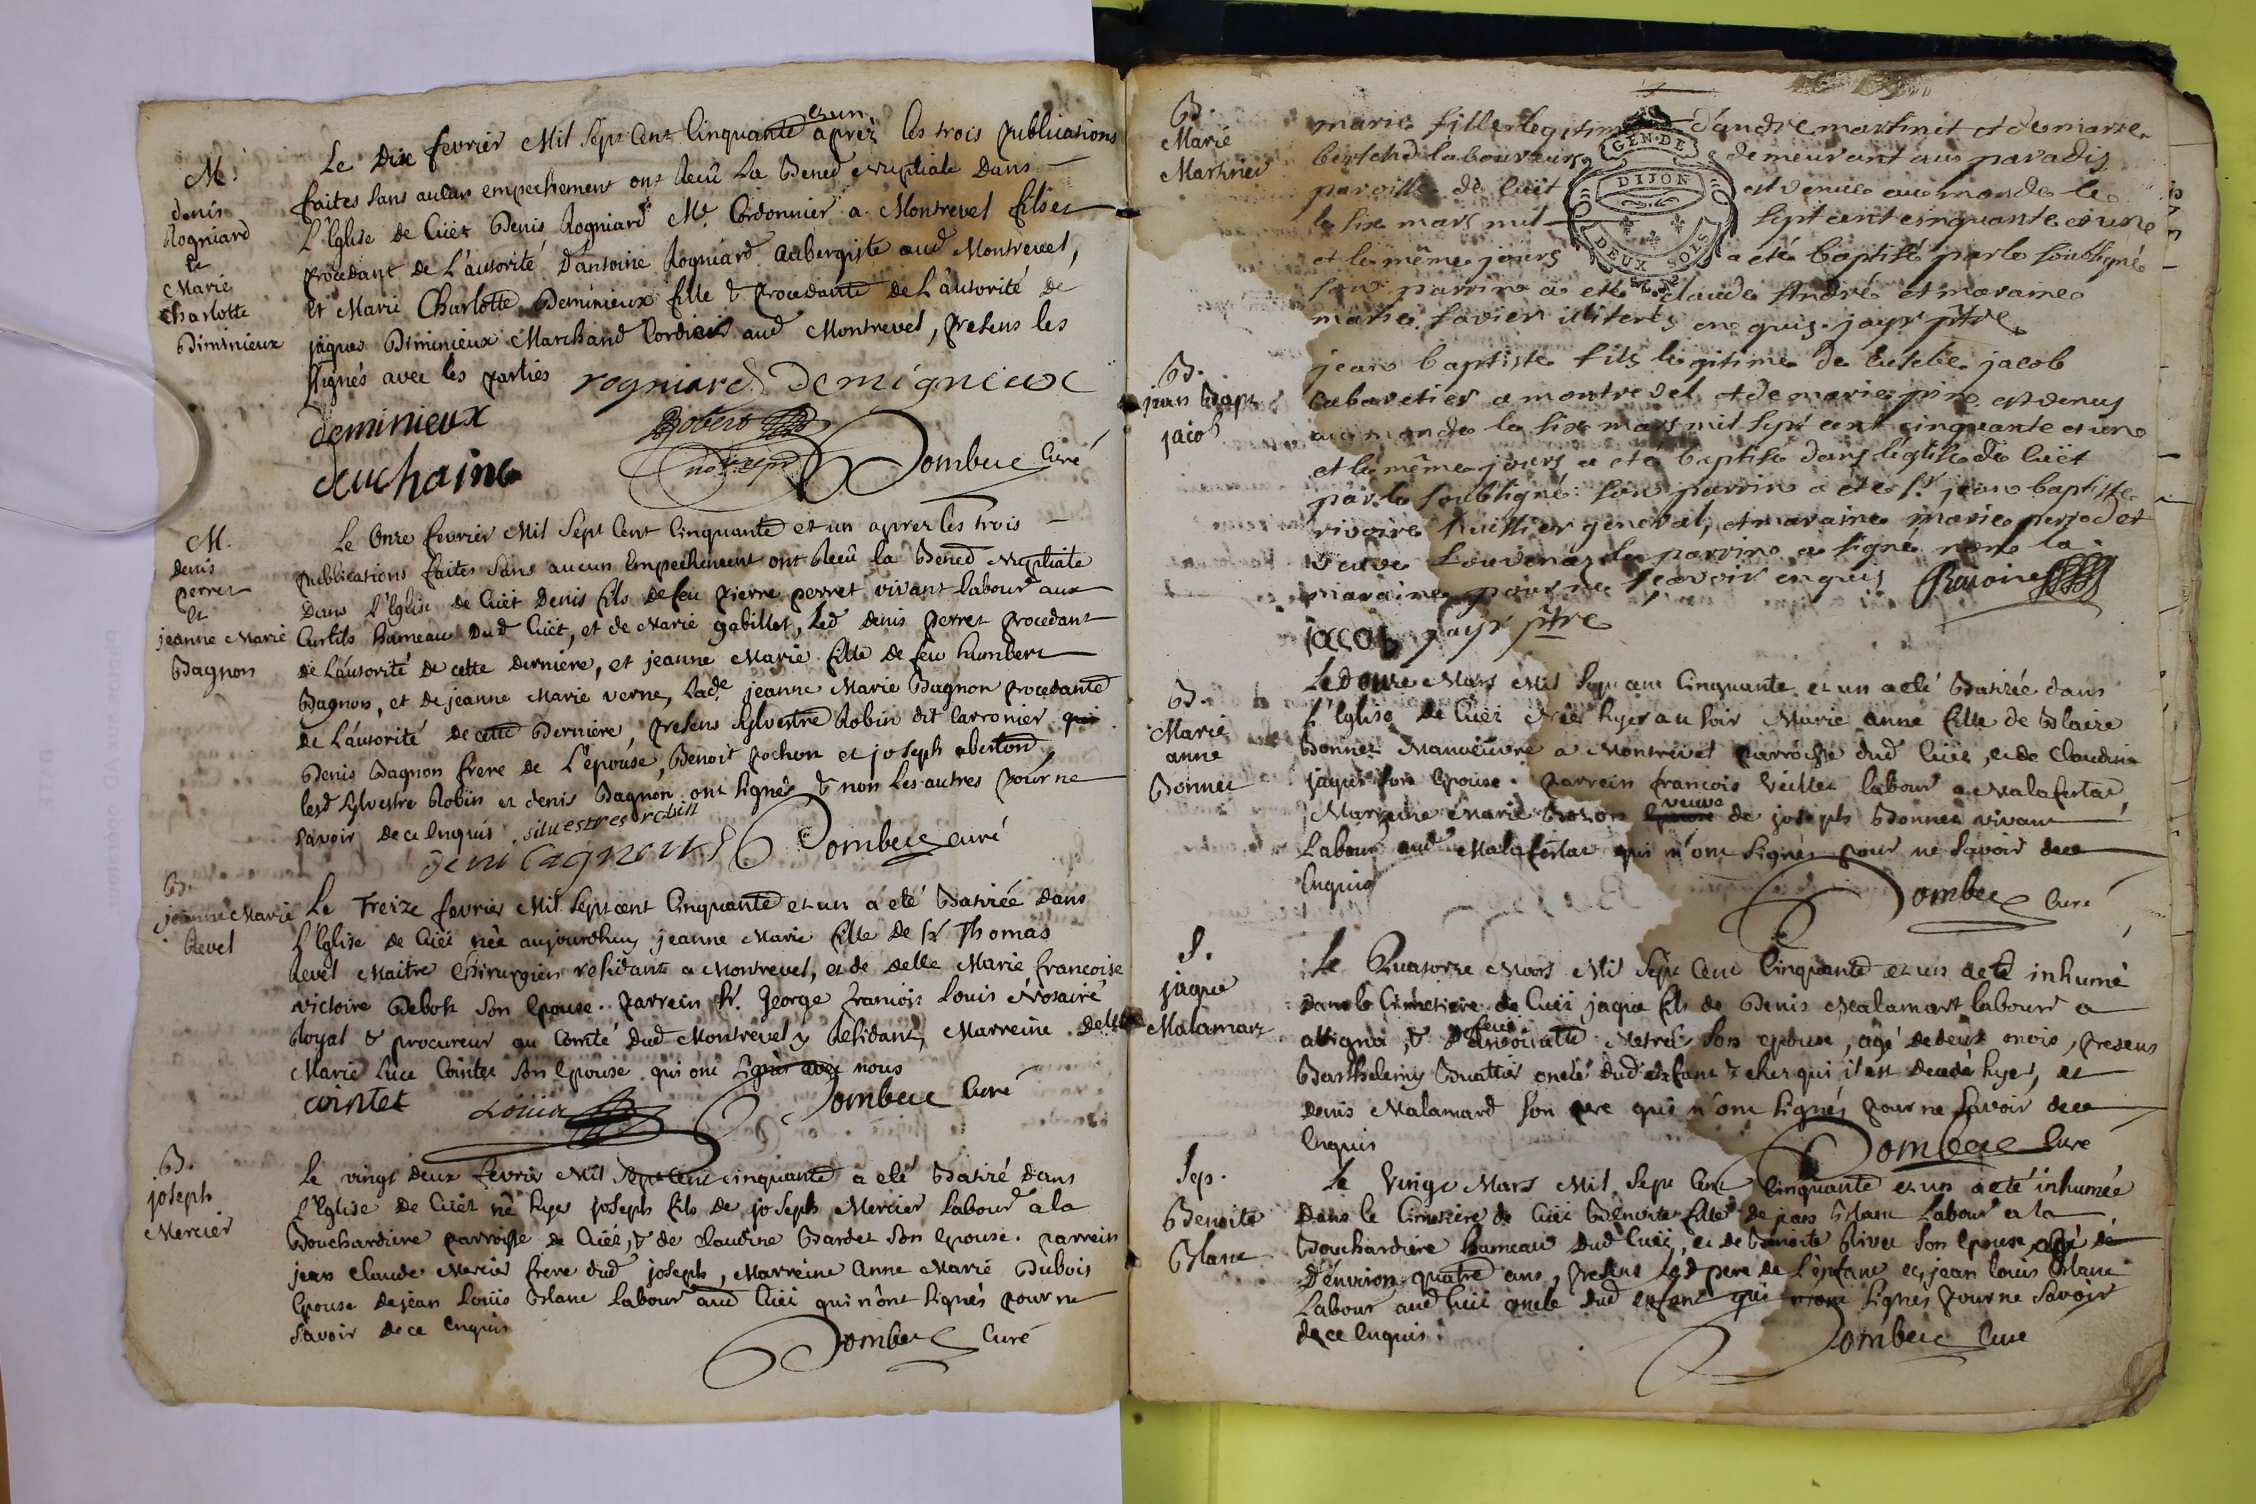 M.
denis
Rogniard
et
Marie
Charlotte
Diminieux
Le Dix fevrier Mil Sept Cent Cinquante et un aprez les trois publications
faites sans aucun empechement ont Recû la Bened Nuptiale Dans
L'Eglise de Cüet Denis Rogniard Me Cordonnier a Montrevel fils et
procedant de L'autorité D'antoine Rogniard Aubergiste aud Montrevel,
et Marie Charlotte Deminieux fille & procedante de L'autorité de
jaques Diminieux Marchand Cordier aud Montrevel, presens les
signés avec les parties
rogniard demignieux
deminieux
Robert
deuchaine
Dombeic Curé
M.
denis
perret
et
jeanne Marie
Bagnon
Le Onze fevrier Mil Sept Cent Cinquante et un aprez les trois
publications faites sans aucun Empechement ont Recû la Bened Nuptiale
Dans L'Eglise de Cüet Denis fils de feu pierre perret vivant labour aux
Curtils hameau Dud Cüet, et de Marie gabillet, Led denis perret procedant
de L'autorité de cette derniére, et jeanne Marie fille de feu humbert
Bagnon, et de jeanne Marie verne, lade jeanne Marie Bagnon procedante
de L'autorité de cette Derniere, presens Sylvestre Robin dit Carronier
Denis Bagnon frere de L'epouse, Benoit pochon et joseph
lesd Sylvestre Robin et denis Bagnon ont signés & non les autres pour ne
savoir de ce Enquis silvestre robin
Dombeic curé
B.
jeanne Marie
Revel
Le Treize fevrier Mil Sept cent Cinquante et un a été Batizée dans
L'Eglise de Cüet née aujourdhuy jeanne Marie fille de Sr Thomas
Revel Maitre Chirurgien residant a Montrevel, et de delle Marie francoise
victoire Debost Son Epouse. parrein Sr. George francois Louis Nosaire
Royal & procureur au Comté dud Montrevel y Residant, Marreine delle
Marie Luce Cointet Son Epouse qui ont signés avec nous
cointet
Louis
Dombeic Curé
B.
joseph
Mercier
Le vingt deux fevrier Mil Sept Cent cinquante a eté Batizé dans
L'Eglise de Cüet né hyer joseph fils de joseph Mercier labour a la
Bouchardiere parroisse de Cüet, & de claudine Bardet son epouse. parrein
jean Claude Mercier frere dud joseph, Marreine Anne Marie Dubois
Epouse de jean Loüis Blanc labour aud Cüet qui n'ont signés pour ne
savoir de ce Enquis
Dombeic Curé
B.
Marie
Martinet
marie fille legitime d'andre martinet et de marie
bertchd laboureurs demeurant au paradis
paroisse de Cüet est venue au monde le
le six mars mil sept cent cinquante et une
et le même jours a eté baptisé par le soubsigné
son parrin a eté claude André et maraine
marie favier illiteres enquis. jayr ptre
GEN. DE
DIJON
DEUX SOLS
B.
jean bapt
jacob
jean baptiste fils legitime de Eusebe jacob
cabaretier a montrevel et de marie est venu
au monde le six mars mil sept cent cinquante et une
et le même jours a eté baptisé dans l'église de Cüet
par le soubsigné: son parrin a eté Sr jean baptiste
rivoire huissier general, et maraine marie
veuve le parrin a signé non la
maraine pour ne sçavoir enquis Rivoire
jacob jayr ptre
B.
Marie
anne
Bonnet
Le douze Mars Mil Sept cent Cinquante et un a eté Batizée dans
L'Eglise de Cüet Née hyer au soir Marie anne fille de Blaize
Bonnet Manoeuvre a Montrevel parroisse dud Cüet, et de Claudine
jayet son Epouse. parrein francois labour a Malafretaz,
Marreine Marie veuve de joseph Bonnet vivant
Labour aud Malafretaz qui n'ont signés pour ne savoir de ce
Enquis
Dombeic Curé
S.
jaque
Malamart
Le Quatorze Mars Mil Sept Cent Cinquante et un a eté inhumé
Dans le Cimetiere de Cüet jaque fils de Denis Malamart labour a
attignat, & de feue son epouse, agé de deux mois, presens
Barthelemy Buattier oncle dud enfant & chez qui il est decedé hyer, et
denis Malamard son pere qui n'ont signés pour ne savoir de ce
Enquis
Dombeic Curé
Sep.
Benoite
Blanc
Le Vingt Mars Mil Sept Cent Cinquante et un a eté inhumée
Dans le Cimetiere de Cüet Benoite fille de jean Blanc Labour a la
Bouchardiere hameau dud Cüet, et de Benoite son Epouse, agé de
D'environ quatre ans, presens Led pere de L'enfant et jean Louis Blanc
Labour aud Cüet oncle dud enfant qui n'ont signés pour ne savoir
de ce Enquis.
Dombeic Curé